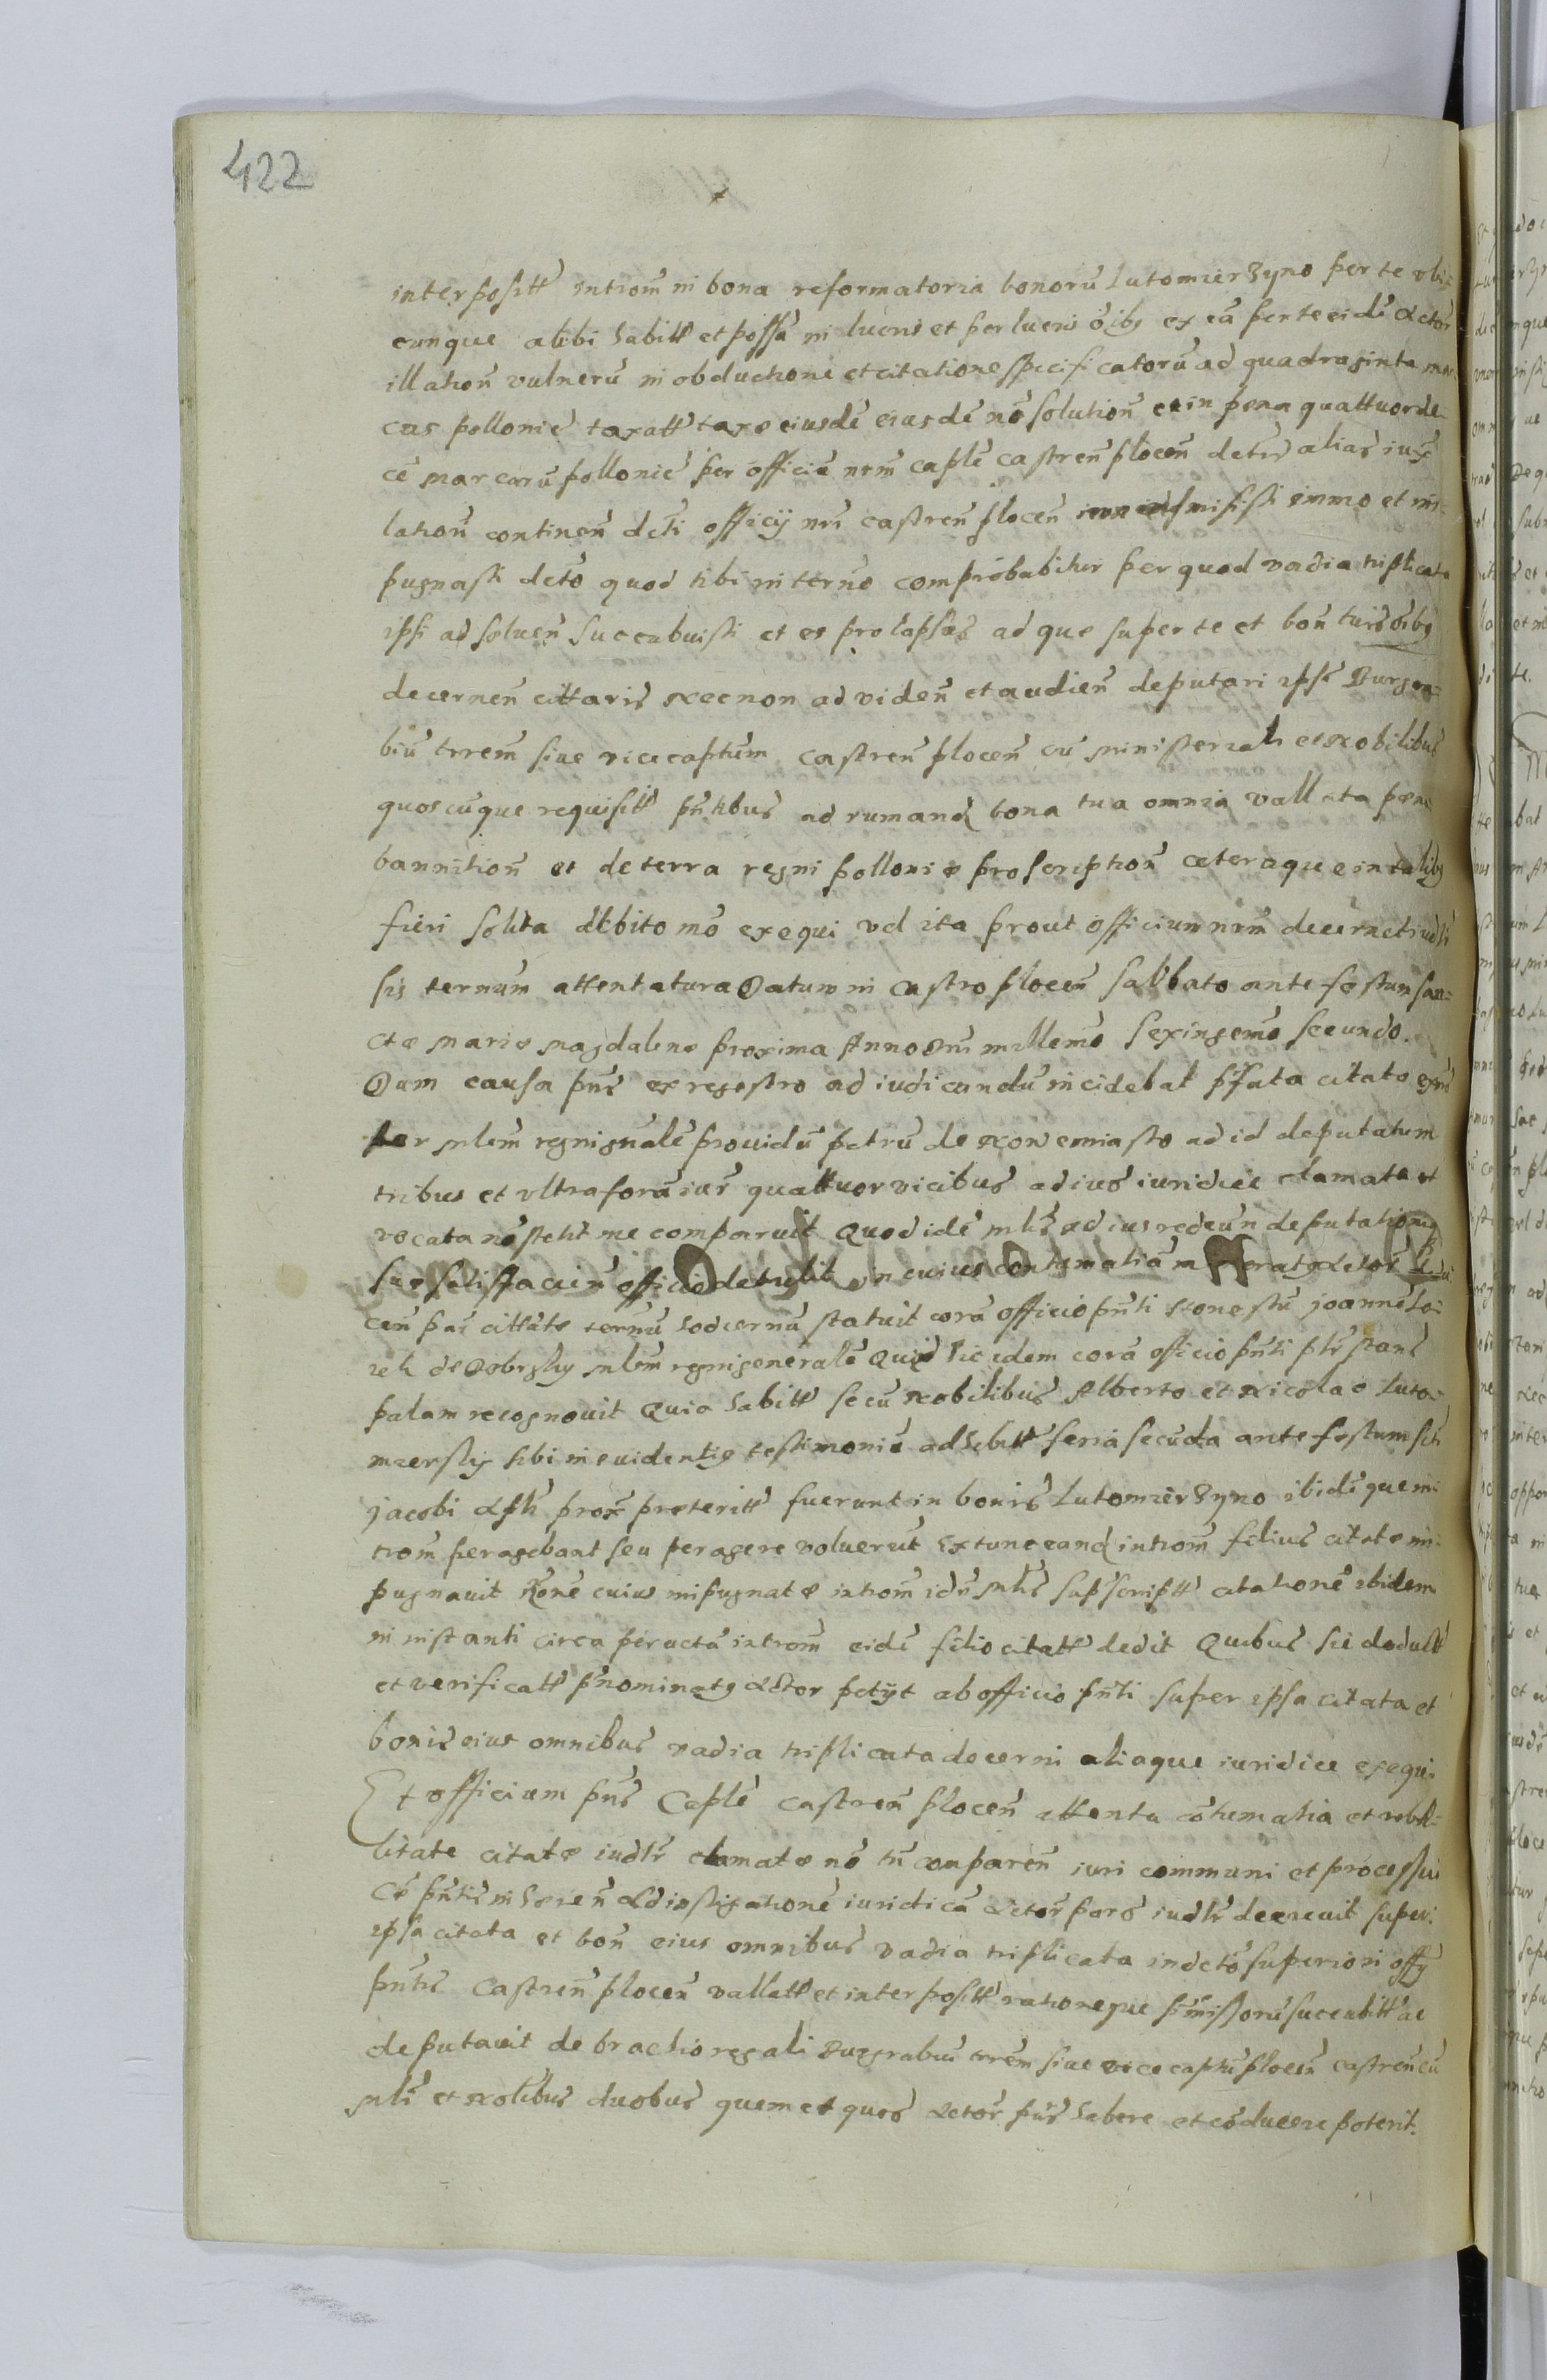 422
interposit intrōm in bona reformatoria bonorū Lutomierzyno per te ubi-
cunque alibi habit et possā in lucris et perlucris oībs ex eā per te eidē Actōr
illationē vulnerū in obductione et citatione specificatorū ad quadraginta mar-
cas pollonic taxatt taxe eiusdē eiusdē nō solutionē et in pena quattuorde-
cē marcarū pollonic per officiū nrm caplē castren plocen detis alias
lationē continen dcti officij nri castren plocen non admisisti immo et im-
pugnasti dcto quod tibi in termo comprobabitur per quod vadia triplicata
ipsi ad soluen succubuisti et es prolapsus ad que super te et bon tuis oībs
decernen cittaris Necnon ad viden et audien deputari ipsē Burgra-
biū trrem siue vicecaptum castren plocen cū ministeriali et Nobilibus
quoscūque requisitt pntibus ad rumand bona tua omnia vallata pene
bannition et de terra regni pollonie proscription ceteraque in talibs
fieri solita debito mō exequi vel ita prout officium nrm decernet iudli
sis termum attentatura Datum in castro plocen sabbato ante festum san-
cte Marie Magdalene proxima Anno Dni millemo sexingemo secundo.
Dum causa pns ex regestro ad iudicandū incidebat pfata citata
per mlem regnignalē prouidū petrū de Nowemiasto ad id deputatum
tribus et vltra forā iuris quattuor vicibus ad ius iuridice clamata et
vocata nō stetit nec comparuit Quod idē mlis ad ius rediun deputationi
sue satisfacien officio detulit In cuius contumatiā Actor
cen par cittate termū hodiernū statuit corā officio pnti Honestū joannē
de Dobrsky mlem regnigeneralē Qui hic idem corā officio pnti plr stans
palam recognouit Quia habitt secū Nobilibus Alberto et Nicolao Luto-
miersky sibi in euidentie testimoniū adhibitt feria secūda ante festum scti
jacobi apli prox preteritt fuerunt in bonis Lutomierzyno ibidē quem
trom peragebant seu peragere voluerūt Extunc eand introm filius citate im-
pugnauit Rōne cuius impugnate introm idē mlis supscriptt citationē ibidem
in instanti circa peractā introm eidē filio citatt dedit Quibus sic deductt
et verificatt pnominats Actor petijt ab officio pnti super ipsa citata et
bonis eius omnibus vadia triplicata decerni aliaque iuridice exequi
Et officium pns Caplē castren plocen attenta cōtumatia et rebel-
litate citate iudlr clamate nō tn comparen iuri communi et processui
Ce pntis inheren Ad instigationē iuridicā Actor pars iudlr decreuit super
ipsa citata et bon eius omnibus vadia triplicata in dcto superiori offy
pntis castren plocen vallatt et interpositt rationeque pmissorū succubitt ac
deputauit de brachio regali Burgrabiū trrem siue vicecaptū plocen castren cū
mli et Nolibus duobus quem et quos Actor pns habere et cōducere poterit.